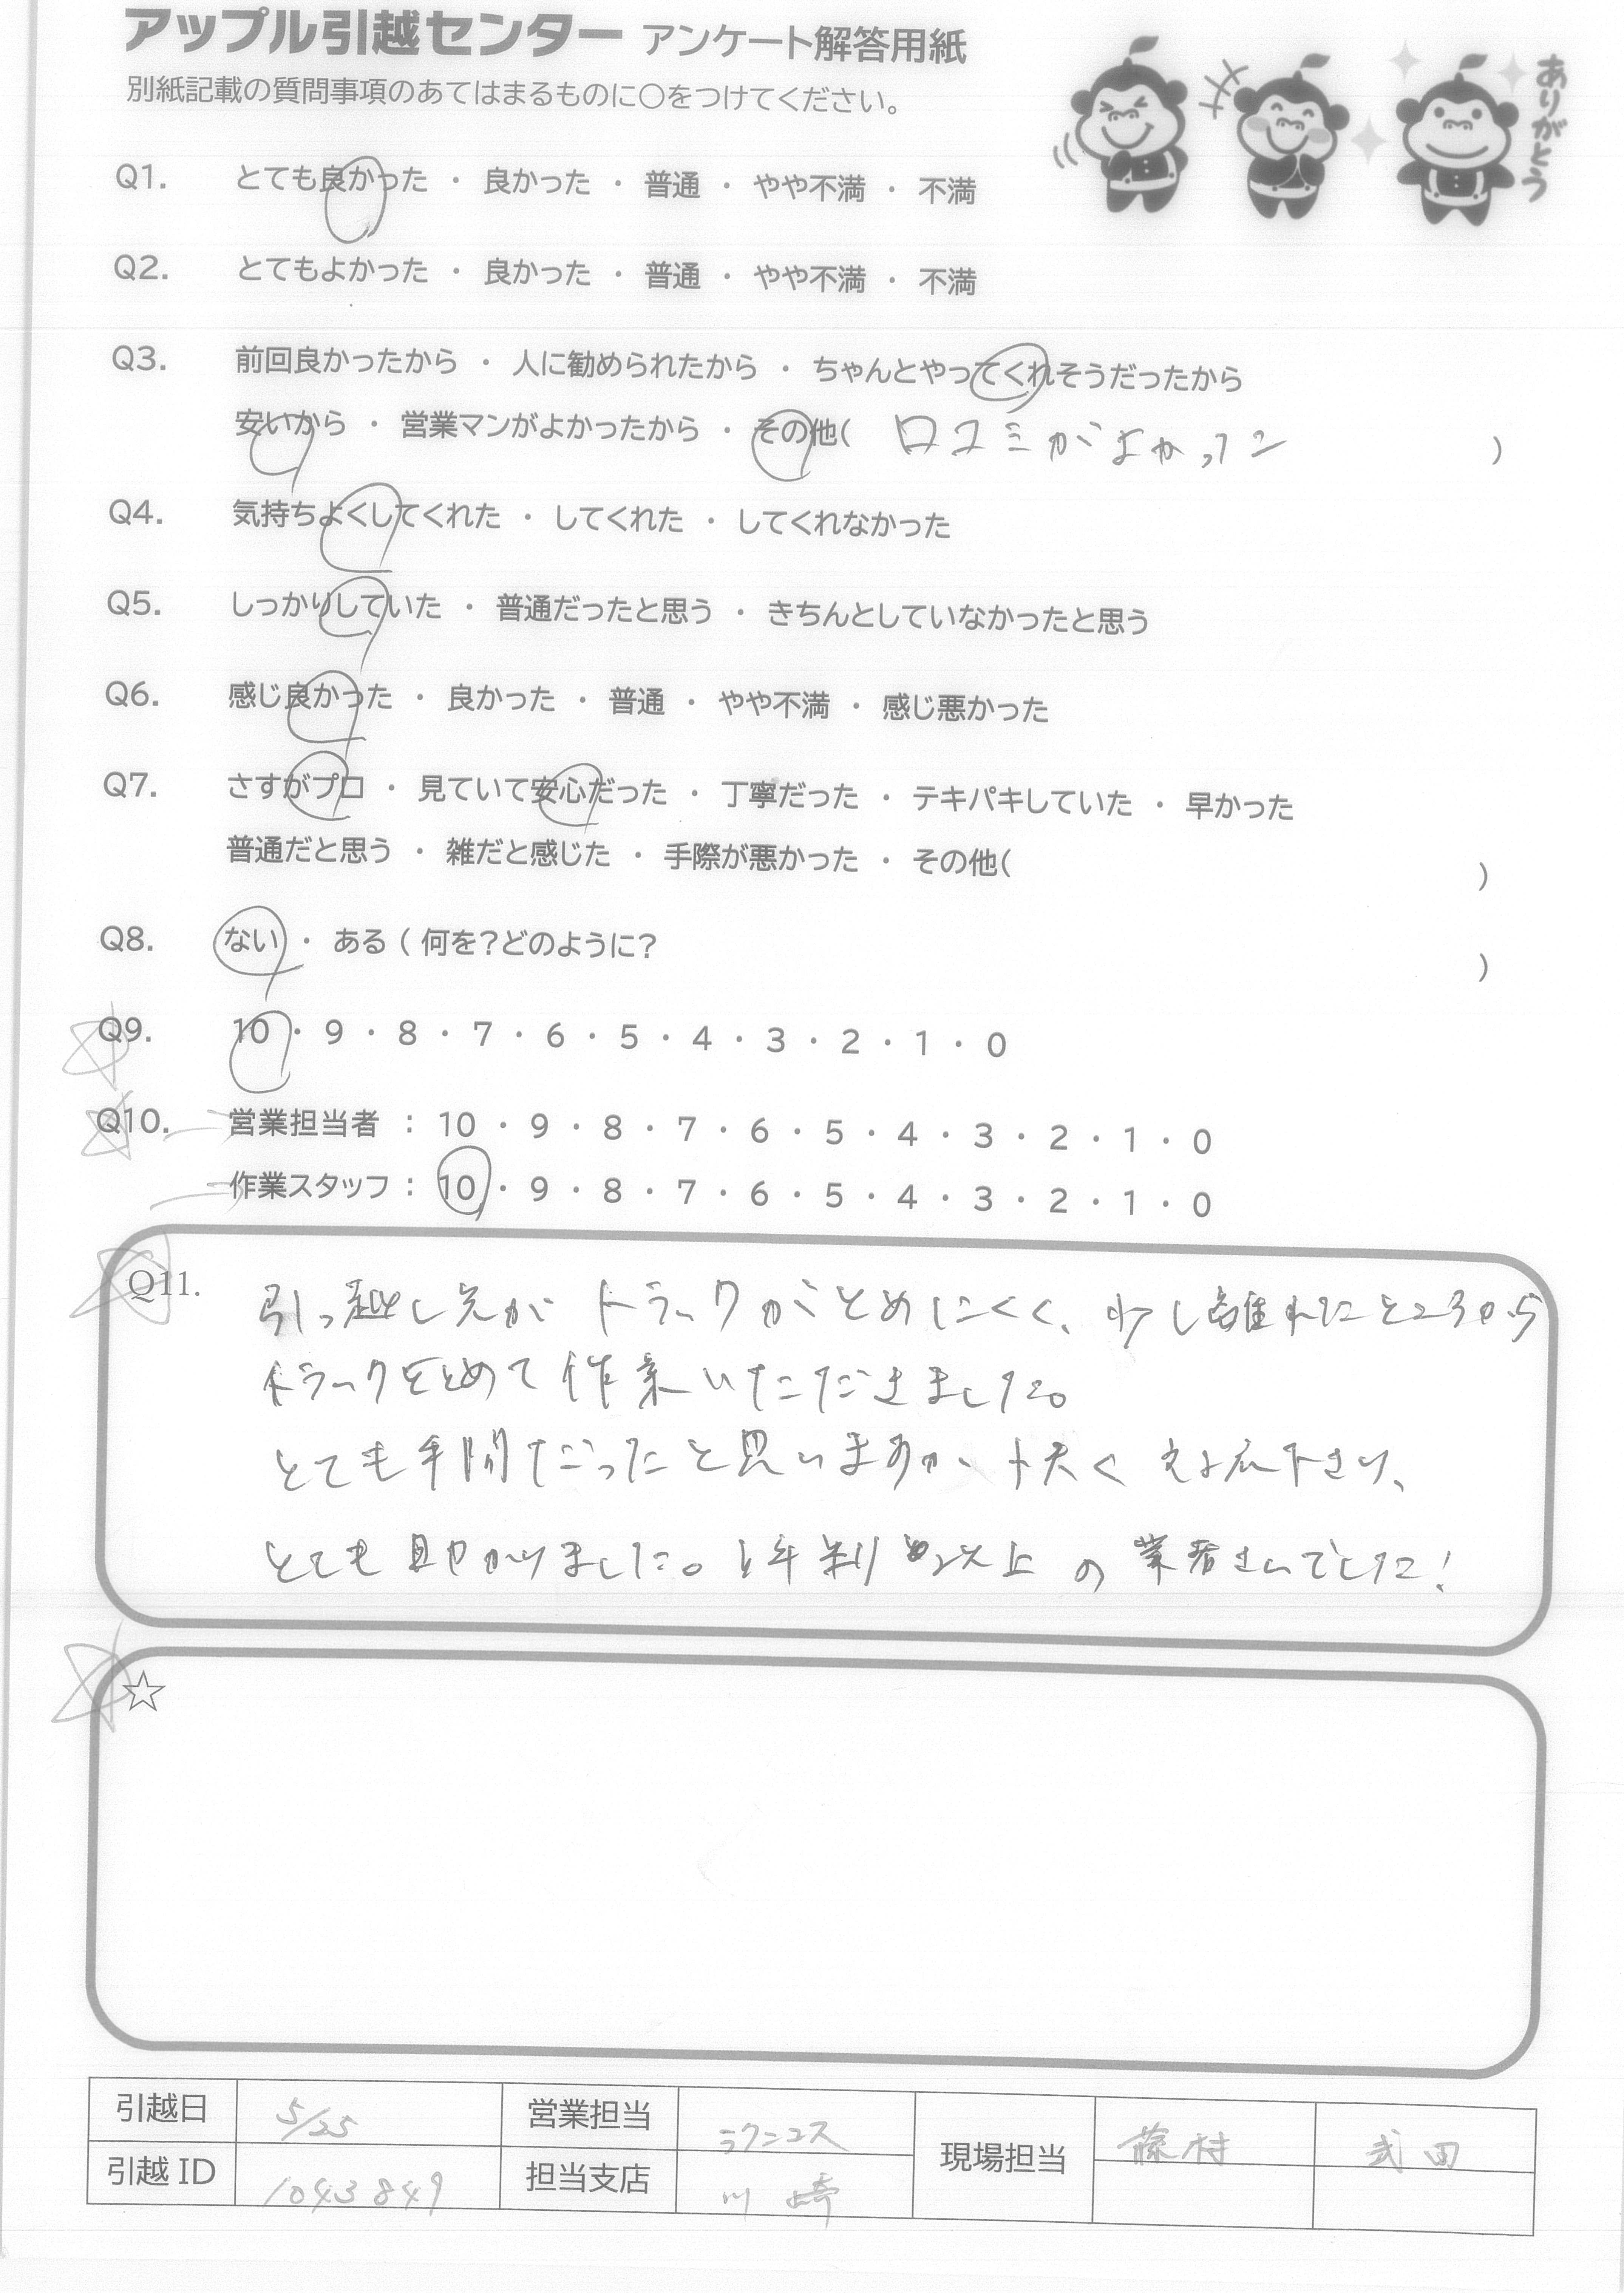 アップル引越センター アンケート解答用紙
別紙記載の質問事項のあてはまるものに○をつけてください。
ありがとう
Q1. とても良かった ・ 良かった ・ 普通 ・ やや不満 ・ 不満
Q2. とてもよかった ・ 良かった ・ 普通 ・ やや不満 ・ 不満
Q3. 前回良かったから ・ 人に勧められたから ・ ちゃんとやってくれそうだったから
安いから ・ 営業マンがよかったから ・ その他( 口コミがよかった )
Q4. 気持ちよくしてくれた ・ してくれた ・ してくれなかった
Q5. しっかりしていた ・ 普通だったと思う ・ きちんとしていなかったと思う
Q6. 感じ良かった ・ 良かった ・ 普通 ・ やや不満 ・ 感じ悪かった
Q7. さすがプロ ・ 見ていて安心だった ・ 丁寧だった ・ テキパキしていた ・ 早かった
普通だと思う ・ 雑だと感じた ・ 手際が悪かった ・ その他( )
Q8. ない ・ ある ( 何を?どのように? )
Q9. 10 ・ 9 ・ 8 ・ 7 ・ 6 ・ 5 ・ 4 ・ 3 ・ 2 ・ 1 ・ 0
Q10. 営業担当者 : 10 ・ 9 ・ 8 ・ 7 ・ 6 ・ 5 ・ 4 ・ 3 ・ 2 ・ 1 ・ 0
作業スタッフ : 10 ・ 9 ・ 8 ・ 7 ・ 6 ・ 5 ・ 4 ・ 3 ・ 2 ・ 1 ・ 0
Q11. 引っ越し先がトラックがとめにくく、少し離れたところから
トラックをとめて作業いただきました。
とても手間だったと思いますが、快く対応下さり、
とても助かりました。評判以上の業者さんでした!
☆
引越日 5/25 営業担当 ラクニコス 現場担当 藤村 武田
引越ID 1043849 担当支店 川崎